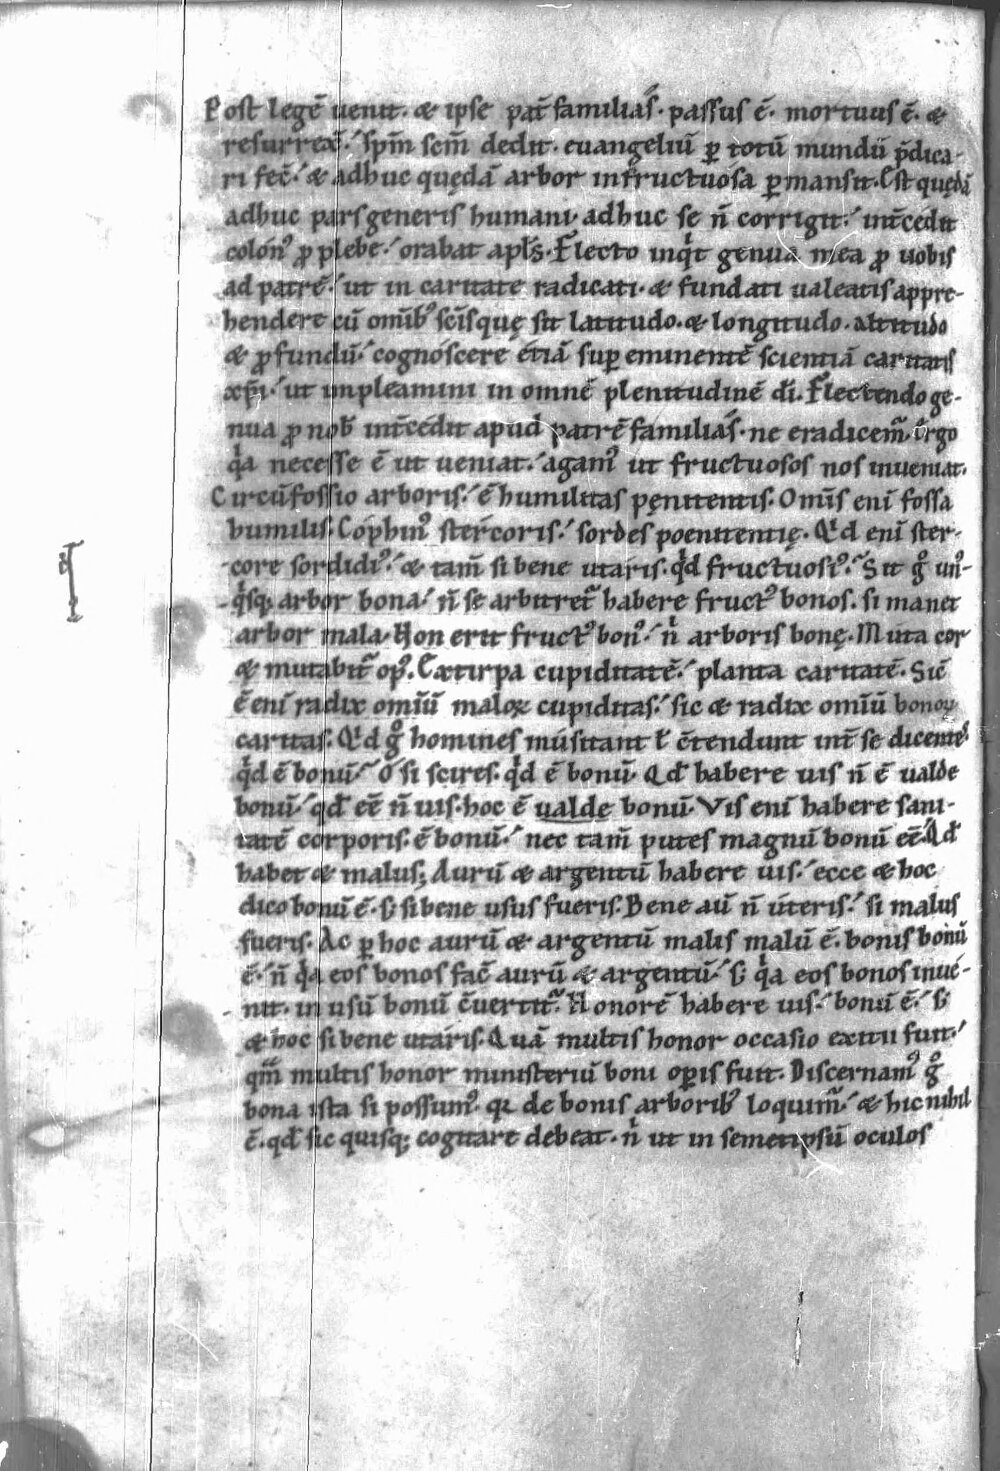 Post legē uenit. & ipse pat̄ familias. passus ē. mortuus ē. &
resurrex̄. sp̄m sc̄m dedit. euangeliū ꝑ totū mundū p̄dica-
ri fec̄. & adhuc quędā arbor infructuosa ꝑmansit. Est quędā
adhuc pars generis humani. adhuc se n̄ corrigit. int̄cedit
colon᷒ ꝓ plebe. orabat apl̄s. Flecto inqͥt genua mea ꝓ uobis
ad patrē. ut in caritate radicati. & fundati ualeatis appre-
hendere cū omīb᷒ sc̄is quę sit latitudo. & longitudo. altitudo
& ꝓfundū. cognoscere etiā suꝑ eminentē scientiā caritatis
xp̄i. ut impleamini in omnē plenitudinē dī. Flectendo ge-
nua ꝓ nob̄ int̄cedit apud patrē familias. ne eradicem᷑. Ergo
qͥa necesse ē ut ueniat. agam᷒ ut fructuosos nos inueniat.
Circūfossio arboris. ē humilitas pęnitentis. Omīs enī fossa
humilis. Cophin᷒ stercoris. sordes poenitentię. Qͥd enī ster-
core sordidi᷒. & tam̄ si bene utaris. qͥd fructuosi᷒. Sit gͦ un᷒-
qͥsq; arbor bona. n̄ se arbitret᷑ habere fruct᷒ bonos. si manet
arbor mala. Non erit fruct᷒ bon᷒. nͥ arboris bonę. Muta cor
& mutabit᷑ op᷒. Extirpa cupiditatē. planta caritatē. Sic̄
ē enī radix omiū maloꝝ cupiditas. sic & radix omiū bonoꝝ
caritas. Qͥd gͦ homines musitant ł c̄tendunt int̄ se dicentes
qͥd ē bonū. O si scires. qͥd ē bonū. Qd̄ habere uis n̄ ē ualde
bonū. qd̄ eē n̄ uis. hoc ē ualde bonū. Vis enī habere sani-
tatē corporis. ē bonū. nec tam̄ putes magnū bonū eē. Qd̄
habet & malus; Aurū & argentū habere uis. ecce & hoc
dico bonū ē. s; si bene usus fueris. Bene aū n̄ uteris. si malus
fueris. Ac ꝑ hoc aurū & argentū malis malū ē. bonis bonū
ē. n̄ qͥa eos bonos fac̄ aurū & argentū. s; qͥa eos bonos inue-
nit. in usū bonū c̄uertit᷑. Honorē habere uis. bonū ē. s;
& hoc si bene utaris. Quā multis honor occasio exitii fuit.
qm̄ multis honor ministeriū boni oꝑis fuit. Discernam᷒ gͦ
bona ista si possum᷒. qꝛ de bonis arborib᷒ loquim᷑. & hic nihil
ē. qd̄ sic quisq; cogitare debeat. nͥ ut in semetipsū oculos